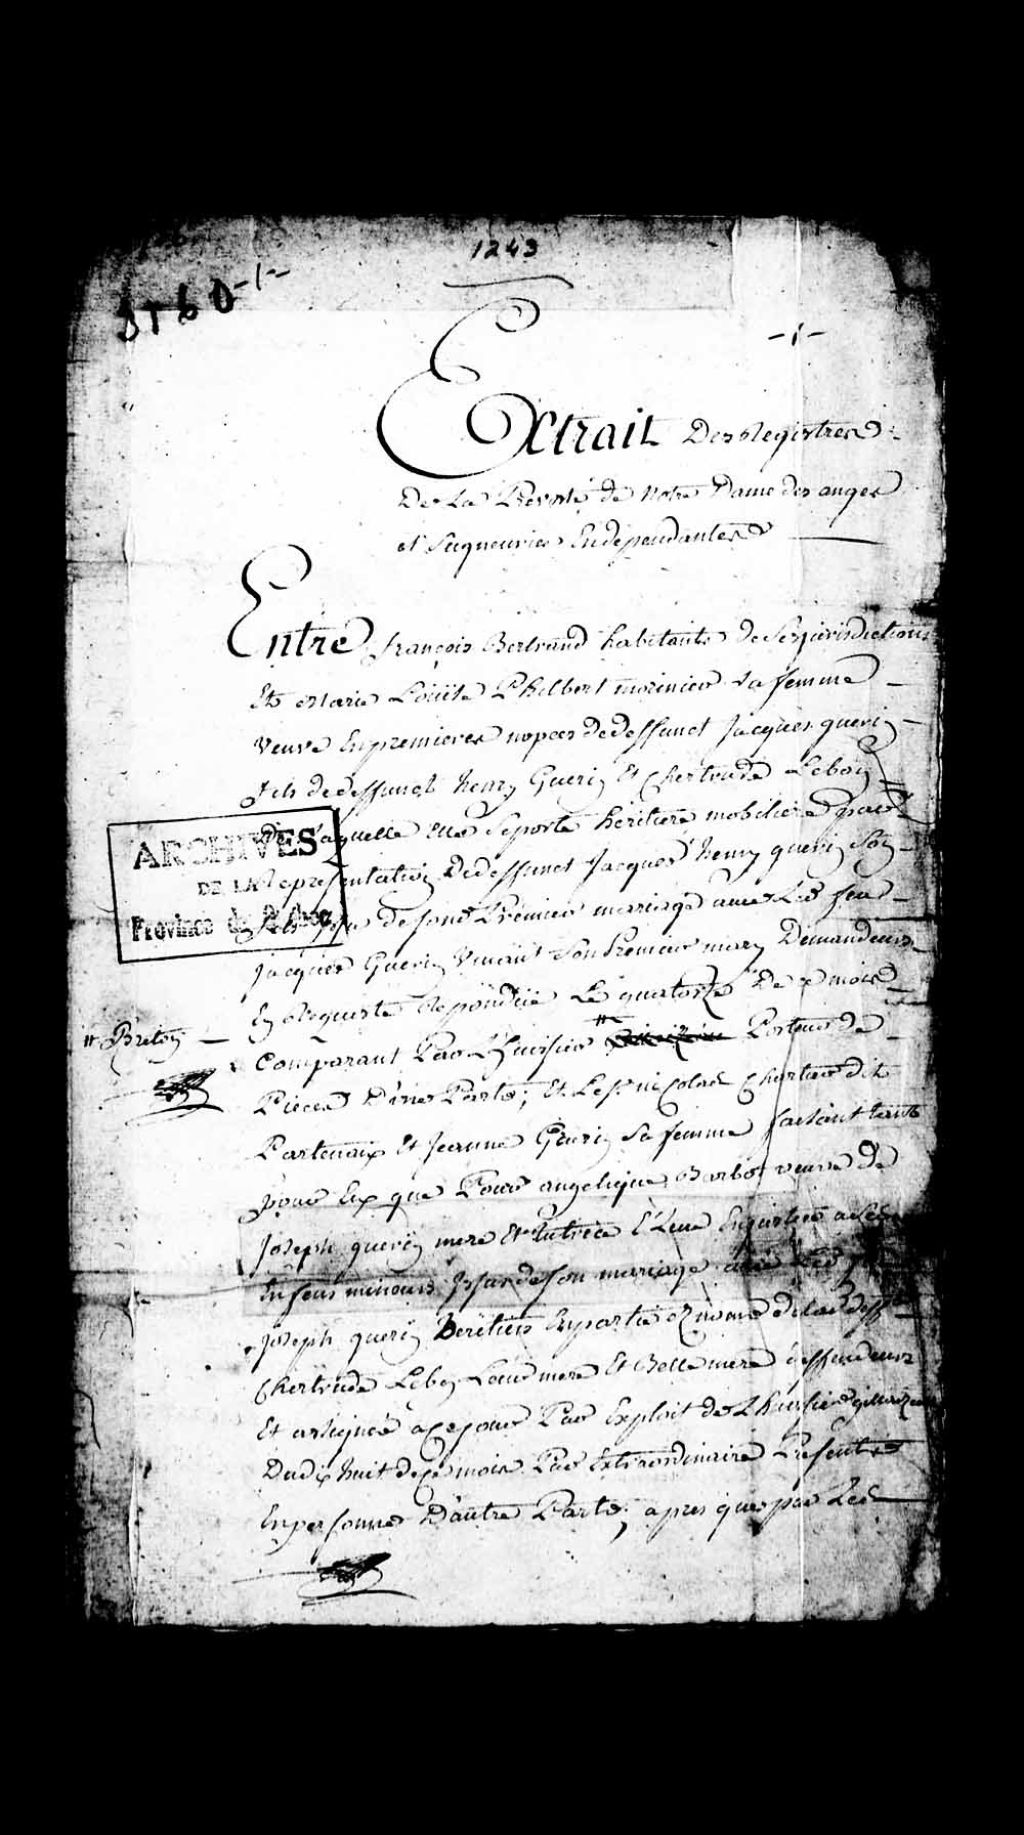 1243
3760 -1-
-1-
Extrait Des Registres
De La Prevosté de Notre Dame des anges
et Seigneuries Endépendantes
Entre françois Bertrand habitants de Ses jurisdictions
Et Marie Loüise Philbert morinier Sa femme
Veuve Enpremieres nopces dedeffunct Jacques guerin
fils dedeffunct henry Guerin Et Chertrude Leboy
de Laquelle Elle Seporte héritiere mobiliere par
Representation Dedeffunct Jacques henry guerin Son
fils de Son Premier mariage avec Led feu
Jacques Guerin Vivant Son Premier mary Demandeurs
En Requeste Répondüe Le quatorze De ce mois
Comparant Par L'huissier # Porteur de
# Breton
Pieces D'une Parte; Et Le Sr. nicolas Chartier dit
Partenaix Et Jeanne Guerin Sa femme faisant tant
pour Eux que Pour angelique Barbot veuve de
Joseph guerin mere Et Tutrice Elüe Enjustice a Ses
Enfens mineurs Jssus de Son mariage avec Led
Joseph guerin héritiers Enpartie
Chertrude Leboy Leur mere Et Belle mere deffendeurs
Et assignés a ce jour Par Exploit de L'huissier
Du dix huit de ce mois Par Extraordinaire Présents
Enpersonnes D'autre Parte; apres que par Led
ARCHIVES
DE LA
Province de Québec